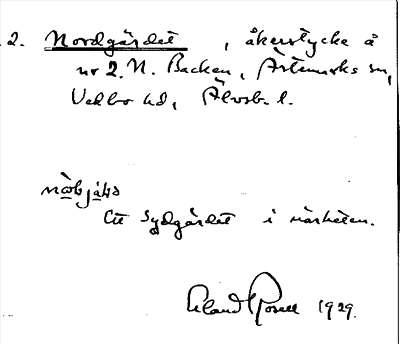 2. Nordgärdet, åkerstycke å
nr 2. N. Backen, Ärtemarks sn,
Vedbo hd, Älvsb. l.
Ett Sydgärdet i närheten.
Erland Rosell 1929.